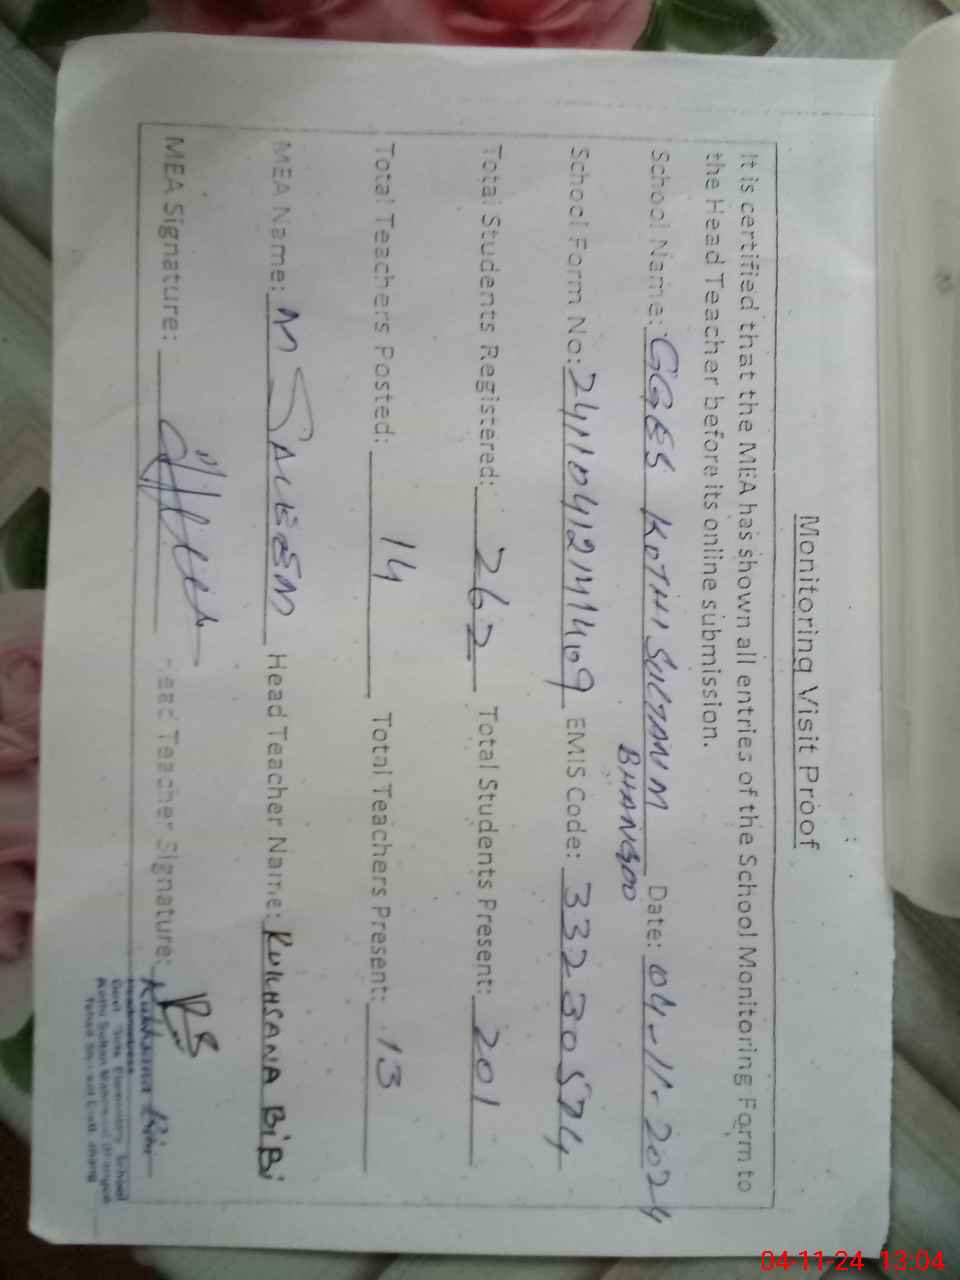 Monitoring Visit Proof
It is certified that the MEA has shown all entries of the School Monitoring Form to
the Head Teacher before its online submission.
School Name: GGES KOTHI SULTAN M Date: 04-11-2024
BHANGOO
School Form No: EMIS Code: 33230574
Total Students Registered: 262 Total Students Present: 201
Total Teachers Posted: 14 Total Teachers Present: 13
MEA Name: M SALEEM Head Teacher Name: RUKHSANA BiBi
MEA Signature: Head Teacher Signature: RB
Rukhsana Bibi
Headmistress
Govt. Girls Elementary School
Kothi Sultan
Jhang
04-11-24 13:04